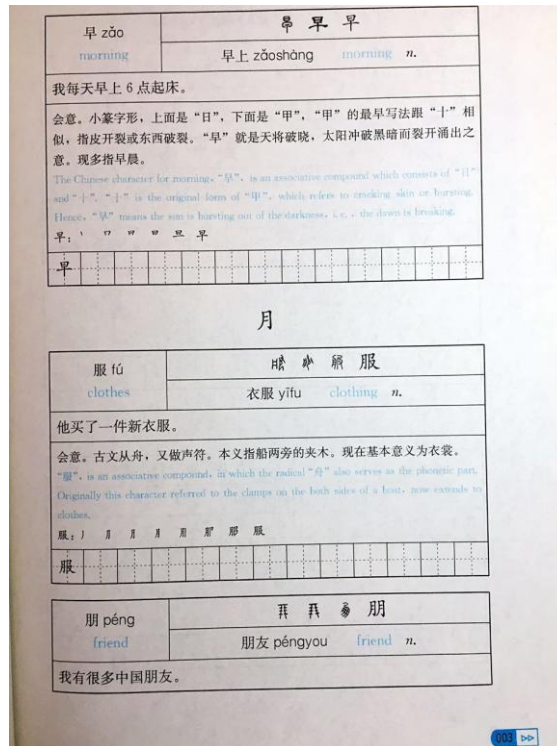 早 zǎo
morning
早 早
早上 zǎoshàng morning n.
我每天早上 6 点起床。
会意。小篆字形，上面是“日”，下面是“甲”，“甲”的最早写法跟“十”相
似，指皮开裂或东西破裂。“早”就是天将破晓，太阳冲破黑暗而裂开涌出之
意。现多指早晨。
The Chinese character for morning, “早”, is an associative compound which consists of “日”
and “十”. “十” is the original form of “甲”, which refers to cracking skin or bursting.
Hence, “早” means the sun is bursting out of the darkness, i. e. , the dawn is breaking.
早：
早
月
服 fú
clothes
服
衣服 yīfu clothing n.
他买了一件新衣服。
会意。古文从舟，又做声符。本义指船两旁的夹木。现在基本意义为衣裳。
“服”, is an associative compound, in which the radical “舟” also serves as the phonetic part.
Originally this character referred to the clamps on the both sides of a boat, now extends to
clothes.
服：
服
朋 péng
friend
朋
朋友 péngyou friend n.
我有很多中国朋友。
003